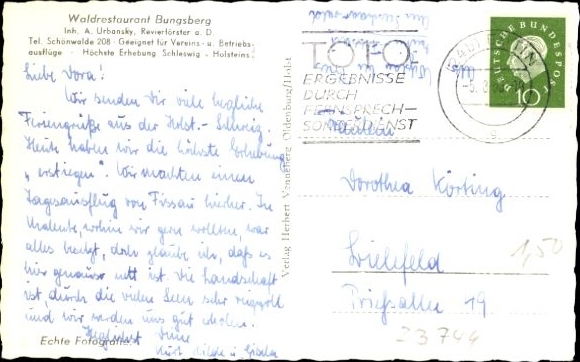 Waldrestaurant Bungsberg
Inh. A. Urbansky, Revierförster a. D.
Tel. Schönwalde 208 · Geeignet für Vereins- u. Betriebs-
ausflüge · Höchste Erhebung Schleswig - Holsteins
Liebe Dora!
Wir senden Dir viele herzliche
Feriengrüße aus der Holst. - Schweiz.
Heute haben wir die höchste Erhebung
„erstiegen". Wir machten einen
Tagesausflug von Fissau hierher. In
Malente, wohin wir gern wollten, war
alles besetzt, doch glaube ich, daß es
hier genauso nett ist. Die Landschaft
ist durch die vielen Seen sehr reizvoll
und wir werden uns gut erholen.
Herzlichst Deine
Hilde u. Gisela
Echte Fotografie
Verlag Herbert Venneberg Oldenburg/Holst
TOTO
ERGEBNISSE
DURCH
FERNSPRECH-
SONDERDIENST
DEUTSCHE BUNDESPOST
10
Dorothea Körting
Bielefeld
Prießallee 19
1,50
23744